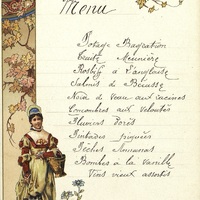 Menu
Potage Bagration
Truite Meunière
Rosbif à l'anglaise
Salmis de Bécasse
Noix de Veau aux racines
Concombres aux veloutés
Pluviers Dorés
Timbales piquées
Pêches
Bombes à la Vanille
Vins vieux assortis